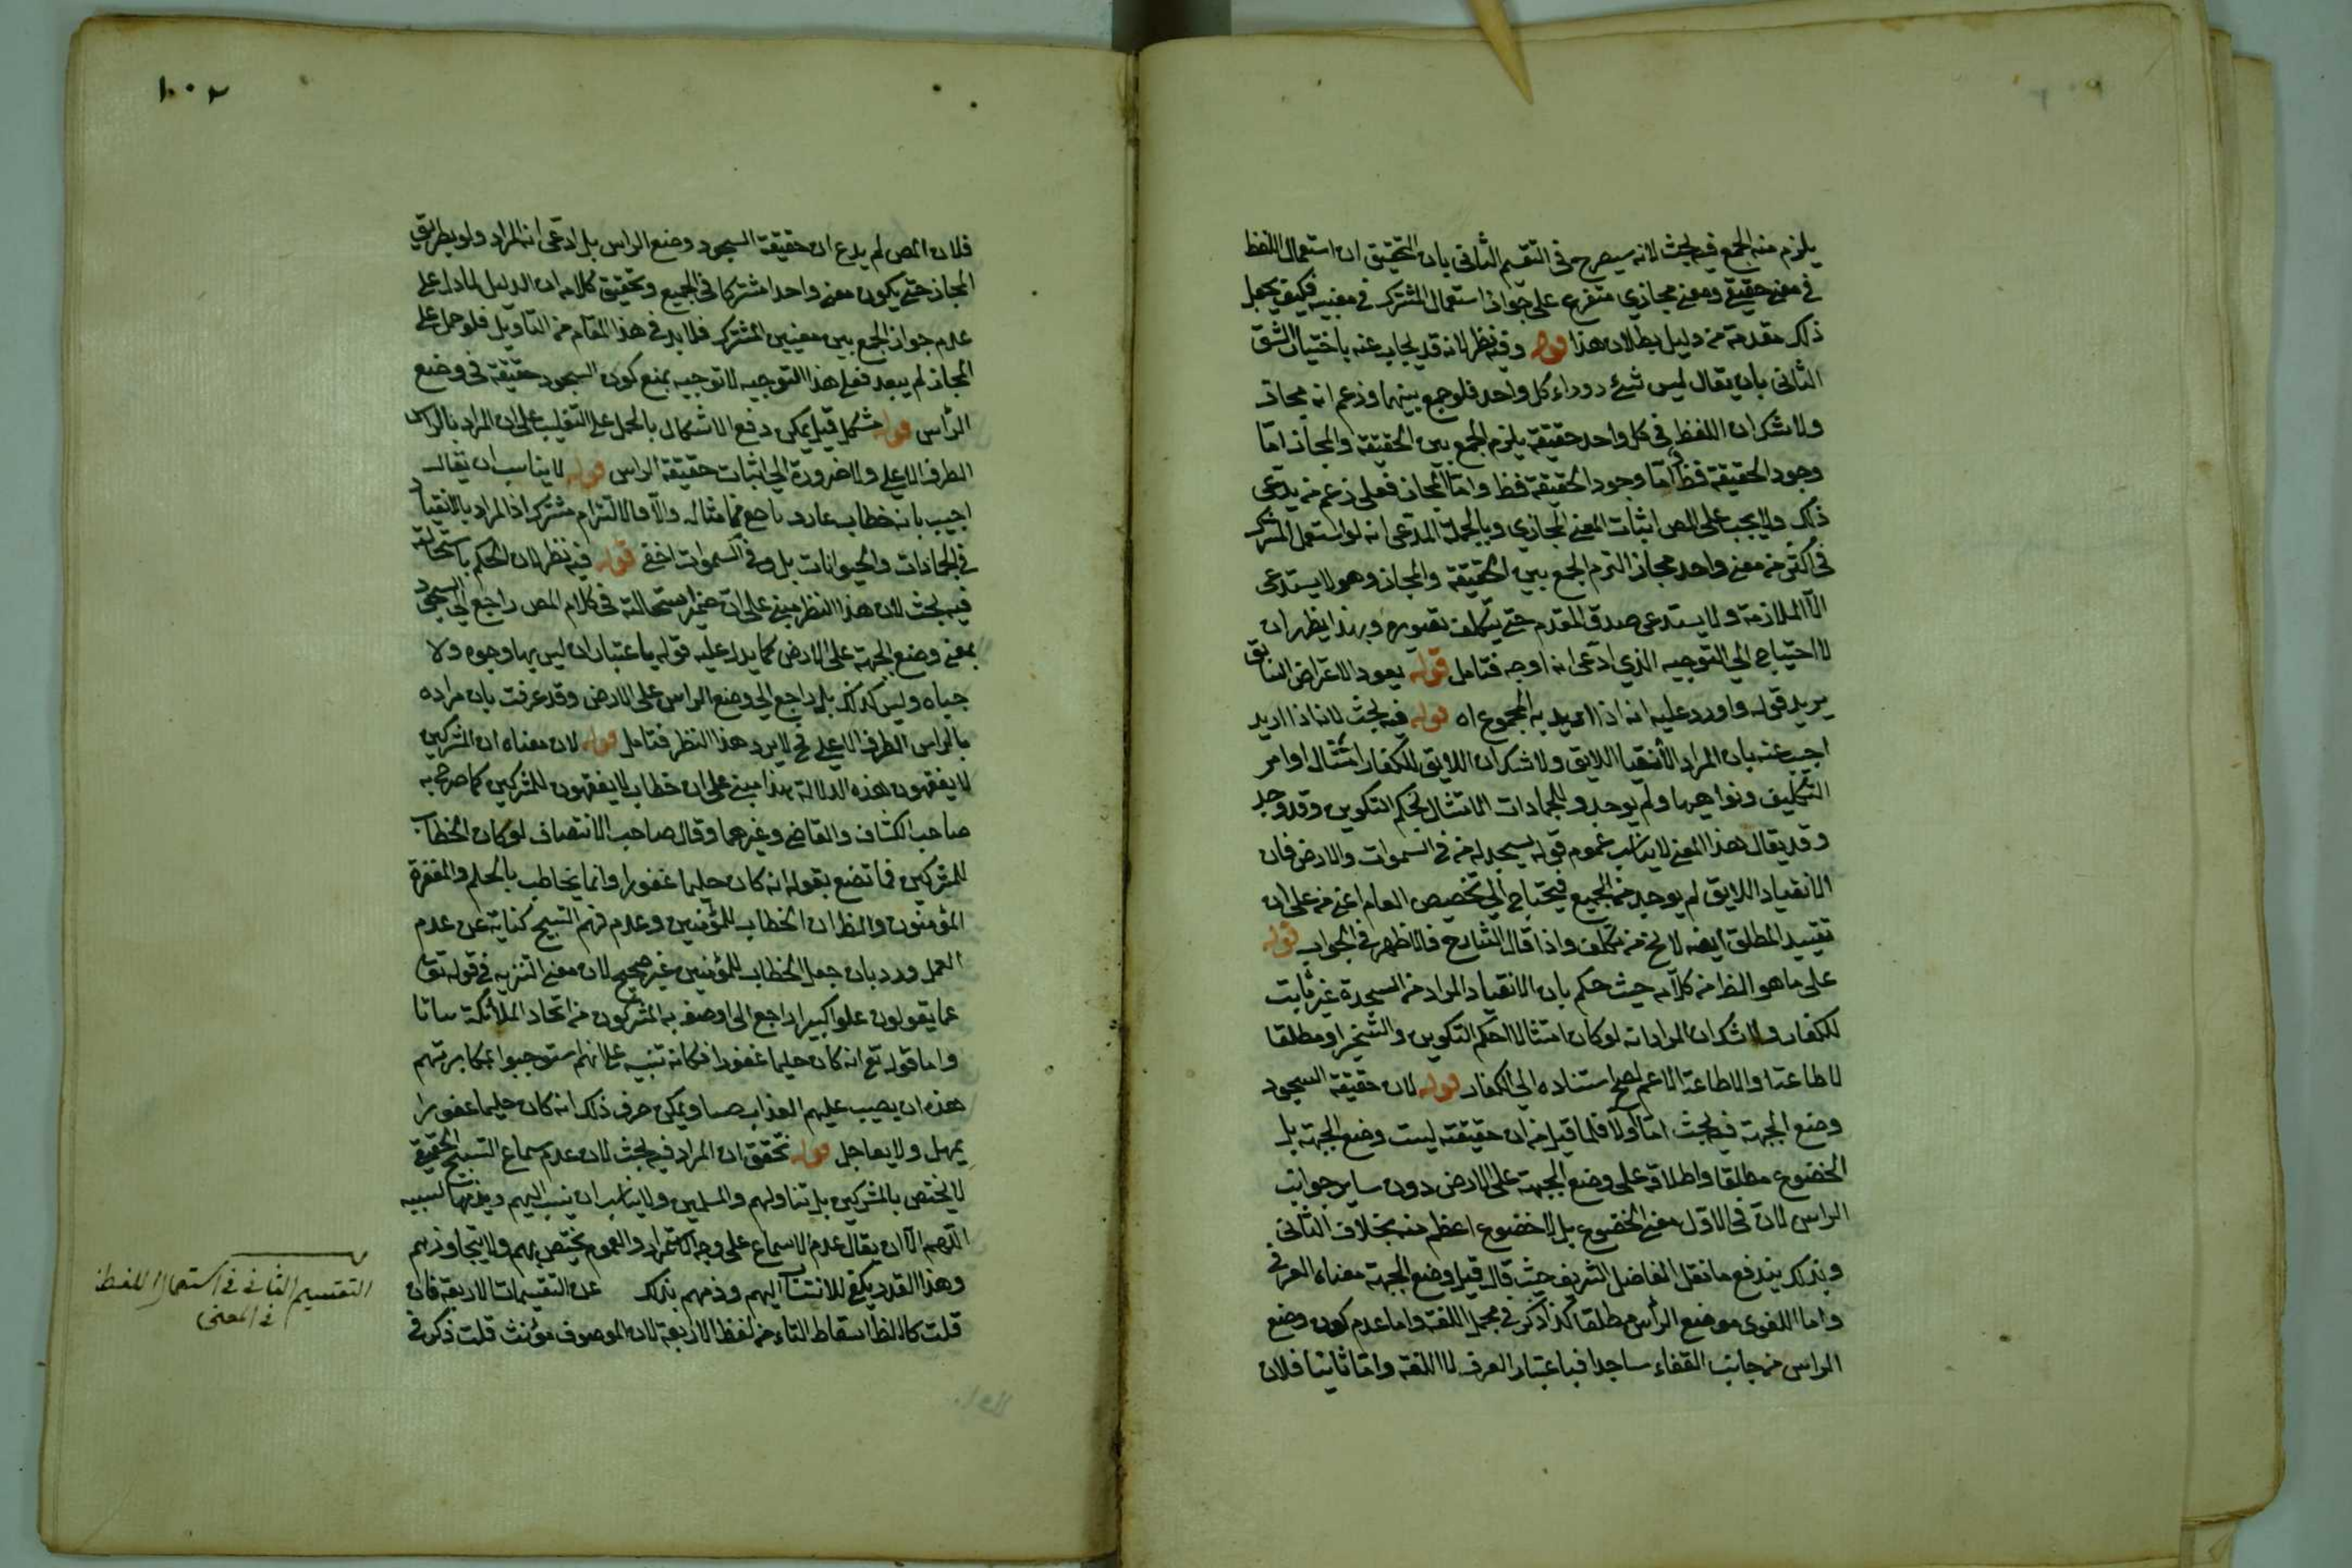 يلزم منه الجمع فيه بحث لانه سيصرح في التقسيم الثاني بان التحقيق ان استعمال اللفظ
في معنى حقيقي ومعنى مجازي متفرع على جواز استعمال المشترك في معنييه فكيف يجعل
ذلك مقدمة من دليل بطلان هذا قوله وفيه نظر لانه قد يجاب عنه باختيار الشق
الثاني بان يقال ليس شيء وراء كل واحد فلو جمع بينهما وزعم انه مجاز
ولا شك ان اللفظ في كل واحد حقيقة يلزم الجمع بين الحقيقة والمجاز اما
وجود الحقيقة فظ اما وجود الحقيقة فظ واما المجاز فعلى زعم من يدعى
ذلك ولا يجب على المص اثبات المعنى المجازي وبالجملة المدعى انه لو استعمل المشترك
في اكثر من معنى واحد مجاز التزم الجمع بين الحقيقة والمجاز وهو لا يستدعى
الا الملازمة ولا يستدعى صدق المقدم حتى يتكلف تصويره وبهذا يظهر ان
لا احتياج الى التوجيه الذي ادعى انه اوجه فتامل قوله يعود الاعتراض السابق
يريد قوله واورد عليه انه اذا اريد به المجموع اه قوله فيه بحث لانا اذا اريد
اجيب عنه بان المراد الانقياد اللايق ولا شك ان اللايق للكفار امتثال اوامر
التكليف ونواهيها ولم يوجد وللجمادات الامتثال لحكم التكوين وقد وجد
وقد يقال هذا المعنى لا يناسب عموم قوله يسجد له من في السموات والارض فان
الانقياد اللايق لم يوجد من الجميع فيحتاج الى تخصيص العام اعنى من على ان
تقييد المطلق ايضا لا يخ من تكلف واذا قال الشارح فالاظهر في الجواب قوله
على ما هو الظ من كلامه حيث حكم بان الانقياد المراد من السجدة غير ثابت
للكفار ولا شك ان المراد انه لو كان امتثالا لحكم التكوين والتسخير او مطلقا
لاطاعتنا والاطاعة الاعم لصح استناده الى الكفار قوله لان حقيقة السجود
وضع الجبهة فيه بحث اما اولا فلما قيل من ان حقيقته ليست وضع الجبهة بل
الخضوع مطلقا واطلاقه على وضع الجبهة على الارض دون ساير جوانب
الراس لان في الاول معنى الخضوع بل لا خضوع اعظم منه بخلاف الثاني
وبذلك يندفع ما نقل الفاضل الشريف حيث قال قيل وضع الجبهة معناه العرفي
واما اللغوى موضع الراس مطلقا كذا ذكر في مجمل اللغة واما عدم كون وضع
الراس من جانب القفاء ساجدا فباعتبار العرف لا اللغة واما ثانيا فلان
١٠٢
فلان المص لم يدع ان حقيقة السجود وضع الراس بل ادعى انه المراد ولو بطريق
المجاز حتى يكون معنى واحدا مشتركا في الجميع وتحقيق كلامه ان الدليل لما دل على
عدم جواز الجمع بين معنيين المشترك فلا بد في هذا المقام من التاويل فلو حمل على
المجاز لم يبعد فعلى هذا التوجيه لا توجيه بمنع كون السجود حقيقة في وضع
الرأس قوله مشكل قيل يمكن دفع الاشكال بالحمل على التغليب على ان المراد بالراس
الطرف الاعلى ولا ضرورة الى اثبات حقيقة الراس قوله لا يناسب ان يقال
اجيب بانه خطاب عار وباصع مما مثاله والا فالالتزام مشترك اذ المراد بالانقياد
في الجمادات والحيوانات بل وفي السموات اخفى قوله فيه نظر لان الحكم باستحالته
فيه بحث لان هذا النظر مبنى على ان ضمير استحالته في كلام المص راجع الى السجود
بمعنى وضع الجبهة على الارض كما يدل عليه قوله باعتبار ان ليس بها وجوه ولا
جباه وليس كذلك بل راجع الى وضع الراس على الارض وقد عرفت بان مراده
بالراس الطرف الاعلى فح لا يرد هذا النظر فتامل قوله لان معناه ان المشركين
لا يفقهون هذه الدلالة هذا مبنى على ان خطاب لا يفقهون للمشركين كما صرح به
صاحب الكشاف والقاضى وغيرهما وقال صاحب الانتصاف لو كان الخطاب
للمشركين فما تصنع بقوله انه كان حليما غفورا وانما يخاطب بالحلم والمغفرة
المؤمنون والظ ان الخطاب للمؤمنين وعدم فهم التسبيح كناية عن عدم
العمل ورد بان جعل الخطاب للمؤمنين غير صحيح لان معنى التنزيه في قوله تع
عما يقولون علوا كبيرا راجع الى ما وصفه به المشركون من اتخاذ الملائكة بناتا
واما قوله تع انه كان حليما غفورا فكانه تنبيه على انهم استوجبوا بمكابرتهم
هذه ان يصب عليهم العذاب صبا ويمكن صرف ذلك انه كان حليما غفورا
يمهل ولا يعاجل قوله تحقق ان المراد فيه بحث لان عدم سماع التسبيح الحقيقة
لا يختص بالمشركين بل تناولهم والمسلمين ولا يناسب ان ينسب اليهم ويذمهم بسببه
اللهم الا ان يقال عدم الاسماع على وجه الاستمرار والعموم يختص بهم ولا يتجاوزهم
وهذا القدر يكفى للانتساب اليهم وذمهم بذلك عن التقسيمات الاربعة فان
قلت كالظ اسقاط التاء من لفظ الاربعة لان الموصوف مؤنث قلت ذكر في
التقسيم الثاني في استعمال اللفظ
في المعنى